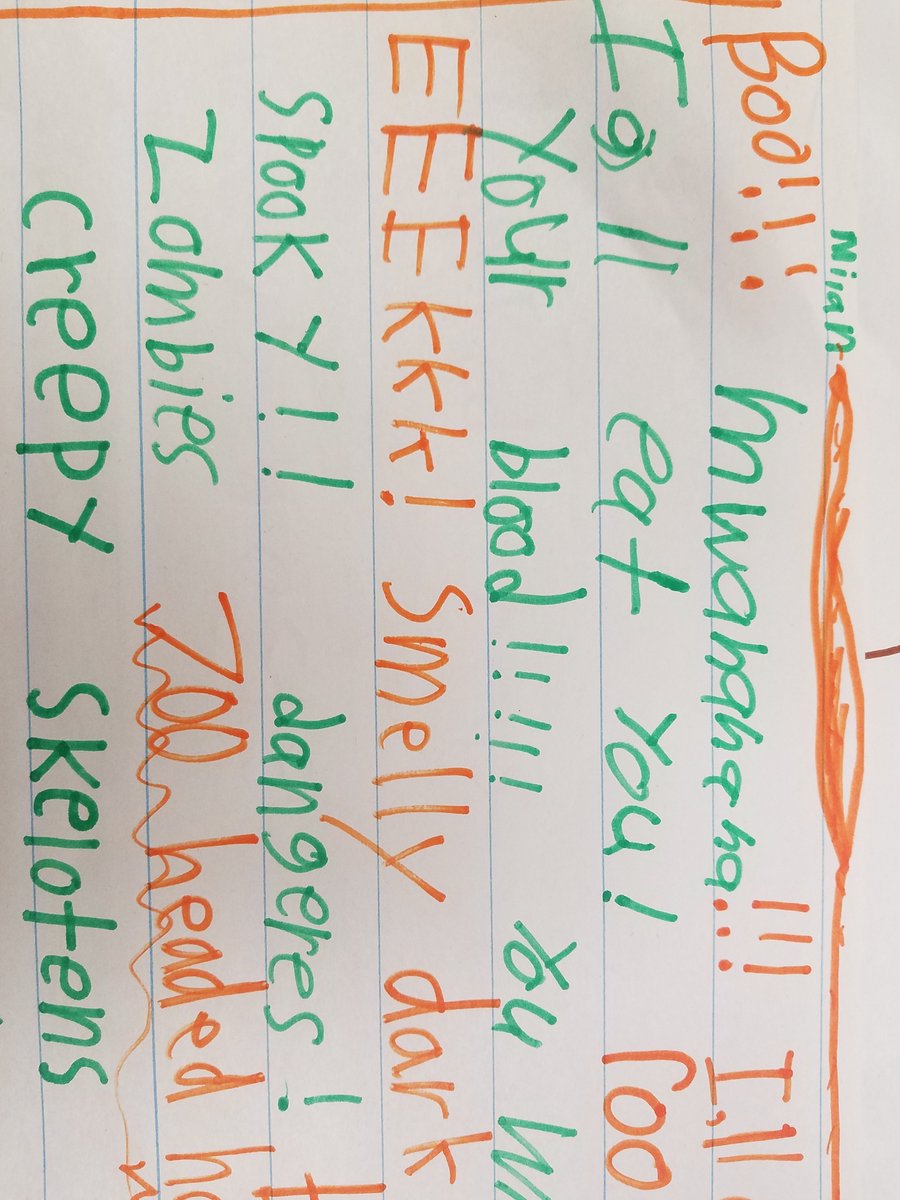 Nilan
Boo!!! mwahahaha!!! I'll
I'll eat You!
Your blood!!!! You
EEEkkk! Smelly dark
Spooky!! dangeres!
Zombies 700 headed
Creepy Skelotens